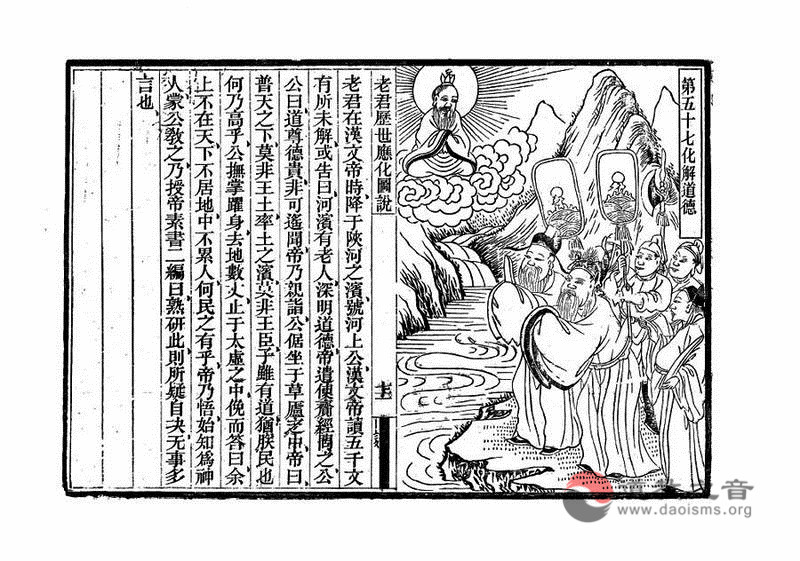 第五十七化解道德
老君歷世應化圖說
老君在漢文帝時降于陝河之濱號河上公漢文帝讀五千文
有所未解或告曰河濱有老人深明道德帝遣使齎經之公
公曰道尊德貴非可遙聞帝乃駕詣公倨坐于草廬之中帝曰
普天之下莫非王土率土之濱莫非王臣子雖有道猶朕民也
何乃高乎公撫掌躍身去地數丈止于太虛之中俛而答曰余
上不在天下不居地中不累人何民之有乎帝乃悟始知爲神
人蒙公教之乃授帝素書二編曰熟研此則所疑自决无事多
言也
道教之音
www.daoisms.org